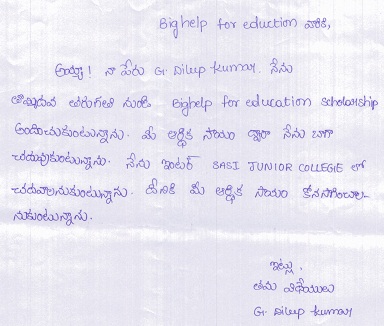 Bighelp for eduction వారికి,
అయ్యా! నా పేరు G. Dilip kumar. నేను
తొమ్మిదవ తరగతి నుండి Bighelp for education scholarship
అందుకుంటున్నాను. మీ ఆర్థిక సాయం ద్వారా నేను బాగా
చదువుకుంటున్నాను. నేను ఇంటర్ SASI JUNIOR COLLEGE లో
చదవాలనుకుంటున్నాను. దీనికి మీ ఆర్థిక సాయం కొనసాగించాల-
నుకుంటున్నాను.
ఇట్లు,
తమ విధేయులు
G. Dilip kumar